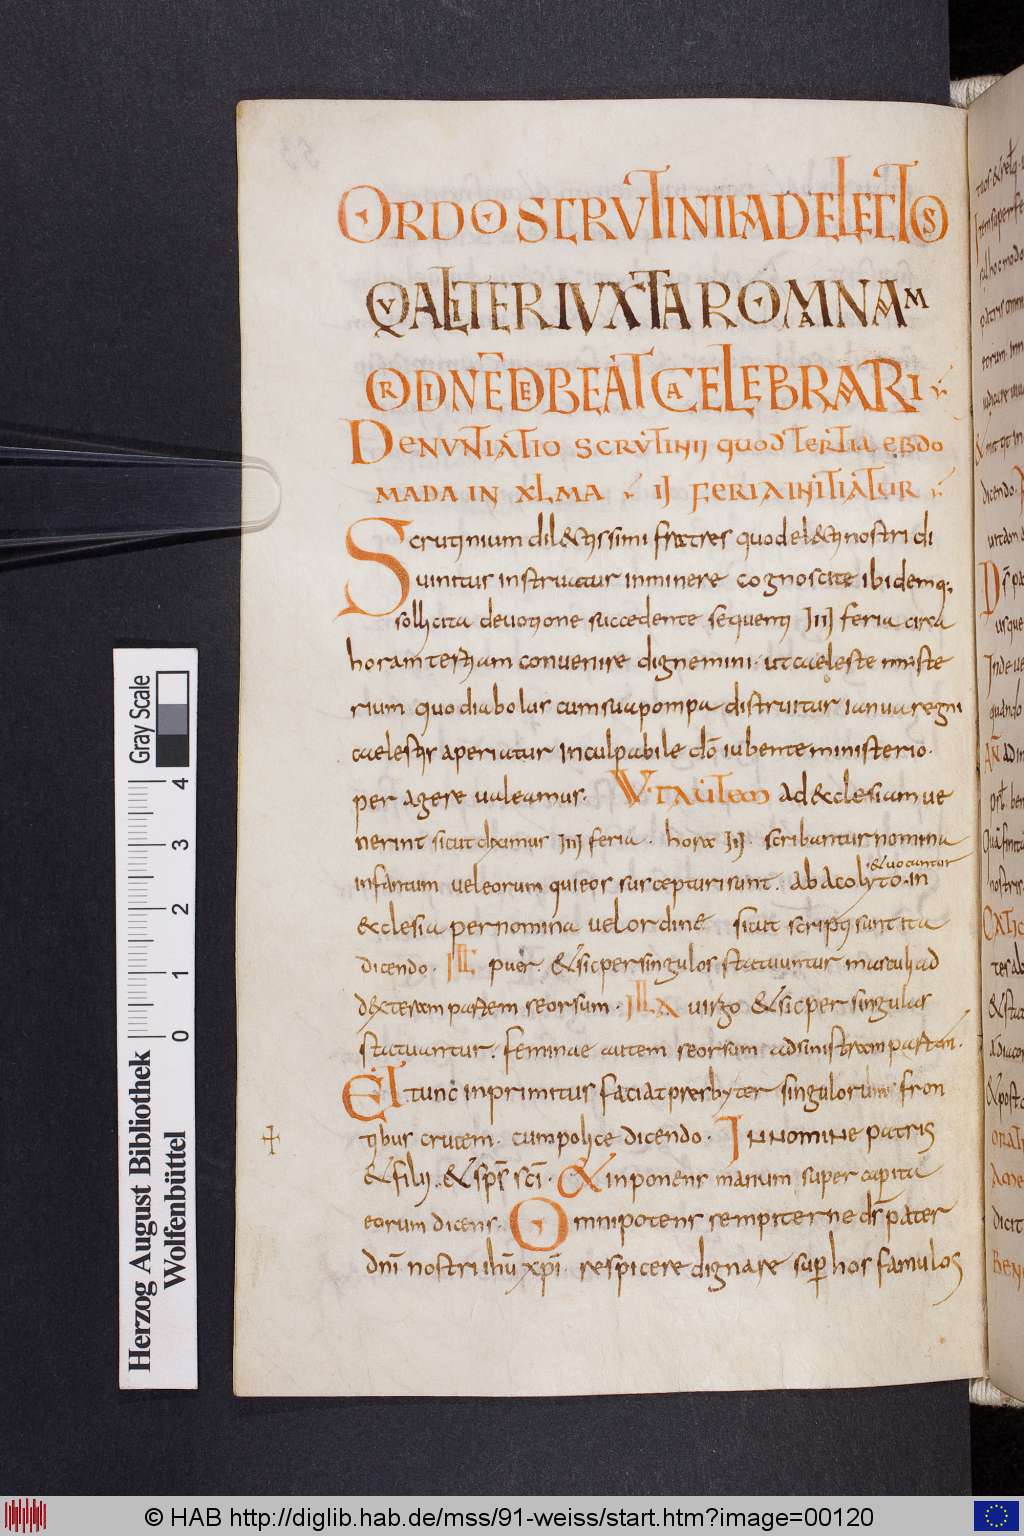 ORDO SCRVTINII AD ELECTOS
QVALITER IVXTA ROMANAM
ORDINEM DEBEAT CELEBRARI
DENVNTIATIO SCRVTINII quod TERTIA EBDO
MADA IN XLMA II FERIA INITIATUR
Scrutinium dilectissimi fratres quod electi nostri di
uinitus instruatur inminere cognoscite ibidemq;
sollicita deuotione succedente sequenti IIII feria circa
horam tertiam conuenire dignemini. ut caeleste miniſte
rium quo diabolus cum sua pompa distruitur ianua regni
caelestis aperiatur inculpabile dõ iubente ministerio.
per agere ualeamus. Vt autem ad ecclesiam ue
nerint sicut diximus IIII feria. hora III. scribantur nomina
infantum uel eorum qui eos suscepturi sunt. ab acolyto. in
& uocantur
ecclesia per nomina uel ordinẽ sicut scripti sunt ita
dicendo. ILL puer. & sic per singulos statuuntur masculi ad
dexteram partem seorsum. ILLA uirgo & sic per singulas
statuantur. feminae autem seorsum ad sinistram partem.
ET tunc inprimitus faciat presbyter singulorum fron
tibus crucem. cum pollice dicendo. IN NOMINE patris
& filii. & sps sci. & inponens manum super capita
eorum dicens. Omnipotens sempiterne ds pater
dni nostri ihu xpi. respicere dignare sup hos famulos
Gray Scale
4 3 2 1 0
Herzog August Bibliothek
Wolfenbüttel
© HAB http://diglib.hab.de/mss/91-weiss/start.htm?image=00120